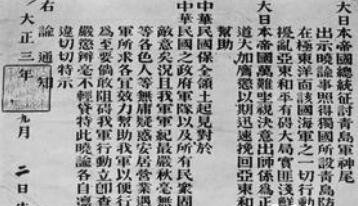 大日本帝國總統征討青島軍神尾
出示曉諭事照得獨國所設青島防
在極東洋面該國海軍之一切行動
擾亂亞東和平有碍大局實匪淺鮮
大日本帝國萬難坐視決意出師係為正
道大加膺懲以期迅速挽回亞東和
幫助
中華民國保全領土起見對於
中華民國之政府軍隊以及所有民衆固
敵意矣況且我軍軍紀最嚴秋毫無
等各色人等無庸疑惑安居營業遇
軍所求各宜效力幫助我軍以便行
為至要倘敢阻碍我軍行動立即查
嚴懲辦毫不輕貸特此曉諭各自凛
違切切特示
右諭通知
大正三年 九月 二日